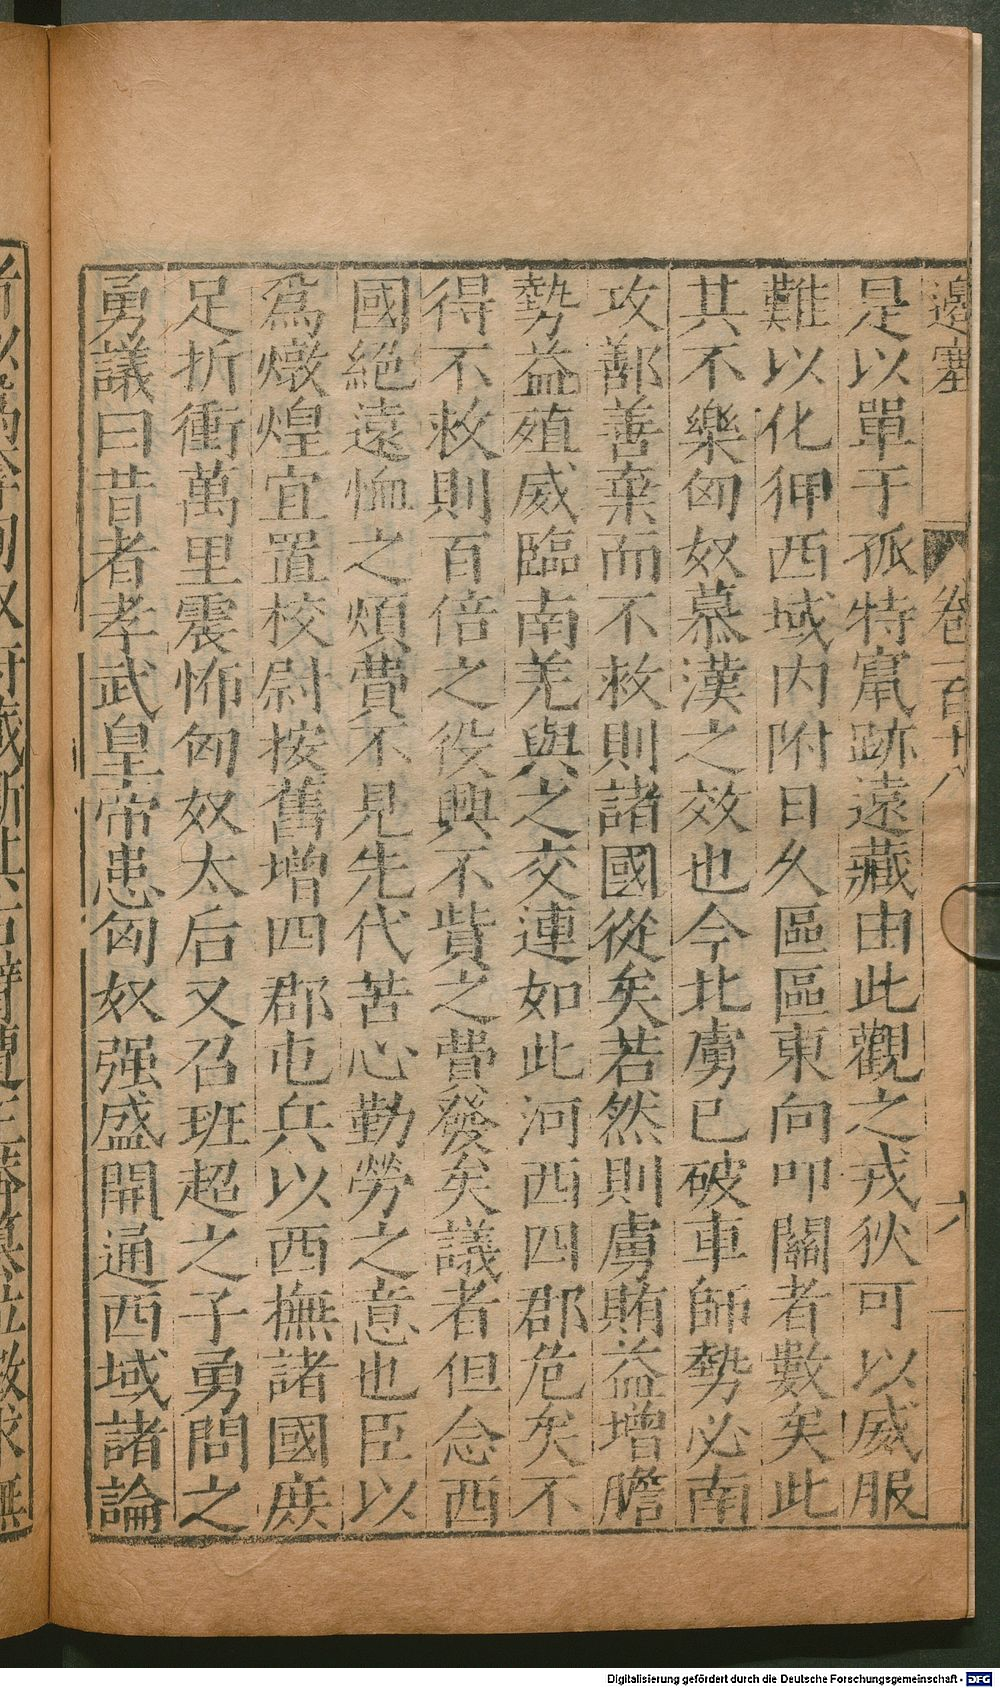 邊塞 卷一百十八 六
是以單于孤特竄跡遠藏由此觀之戎狄可以威服
難以化狎西域內附日久區區東向叩關者數矣此
其不樂匈奴慕漢之效也今北虜已破車師勢必南
攻鄯善棄而不救則諸國從矣若然則虜賄益增膽
勢益殖威臨南羌與之交連如此河西四郡危矣不
得不救則百倍之役興不貲之費發矣議者但念西
國絕遠恤之煩費不見先代苦心勤勞之意也臣以
爲燉煌宜置校尉按舊增四郡屯兵以西撫諸國庶
足折衝萬里震怖匈奴太后又召班超之子勇問之
勇議曰昔者孝武皇帝患匈奴强盛開通西域諸論
Digitalisierung gefördert durch die Deutsche Forschungsgemeinschaft - DFG